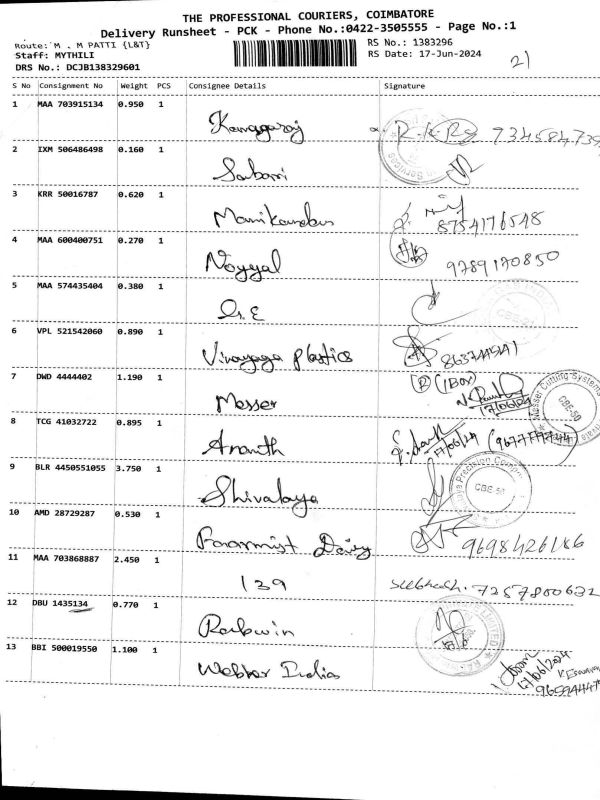 THE PROFESSIONAL COURIERS, COIMBATORE
Delivery Runsheet - PCK - Phone No.:0422-3505555 - Page No.:1
Route: M . M PATTI {L&T}
RS No.: 1383296
Staff: MYTHILI
RS Date: 17-Jun-2024
DRS No.: DCJB138329601
2)
S No Consignment No Weight PCS Consignee Details Signature
1 MAA 703915134 0.950 1 Kanagaraj
2 IXM 506486498 0.160 1 Sabari
3 KRR 50016787 0.620 1 Manikandan 8754176548
4 MAA 600400751 0.270 1 Noyyal 9789170850
5 MAA 574435404 0.380 1
6 VPL 521542060 0.890 1 Vinayaga plastics
7 DWD 4444402 1.190 1 Messer (1 Box) 17/06/24
Messer Cutting Systems
CBE-50
8 TCG 41032722 0.895 1 Ananth 17/06/24
9 BLR 4450551055 3.750 1 Shivalaya
Precision
CBE-50
10 AMD 28729287 0.530 1 Dairy 9698426186
11 MAA 703868887 2.450 1 139 Subhash. 7257800632
12 DBU 1435134 0.770 1
13 BBI 500019550 1.100 1 India 17/06/2024